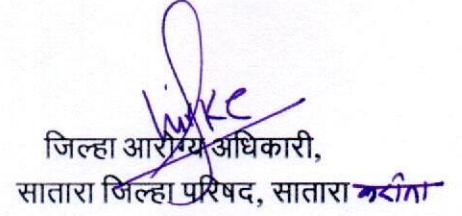 जिल्हा आरोग्य अधिकारी,
सातारा जिल्हा परिषद, सातारा करीता